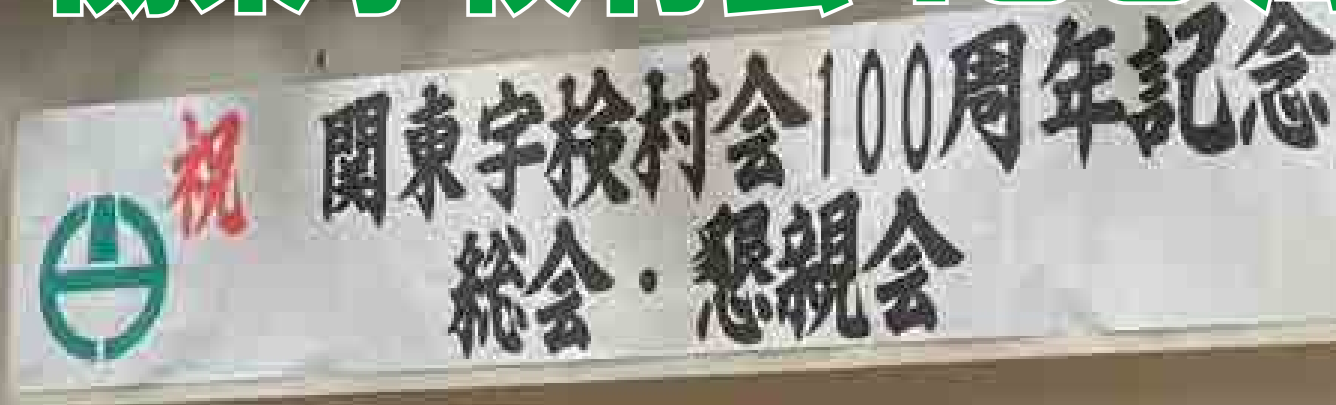 祝 関東宇検村会100周年記念
総会・懇親会